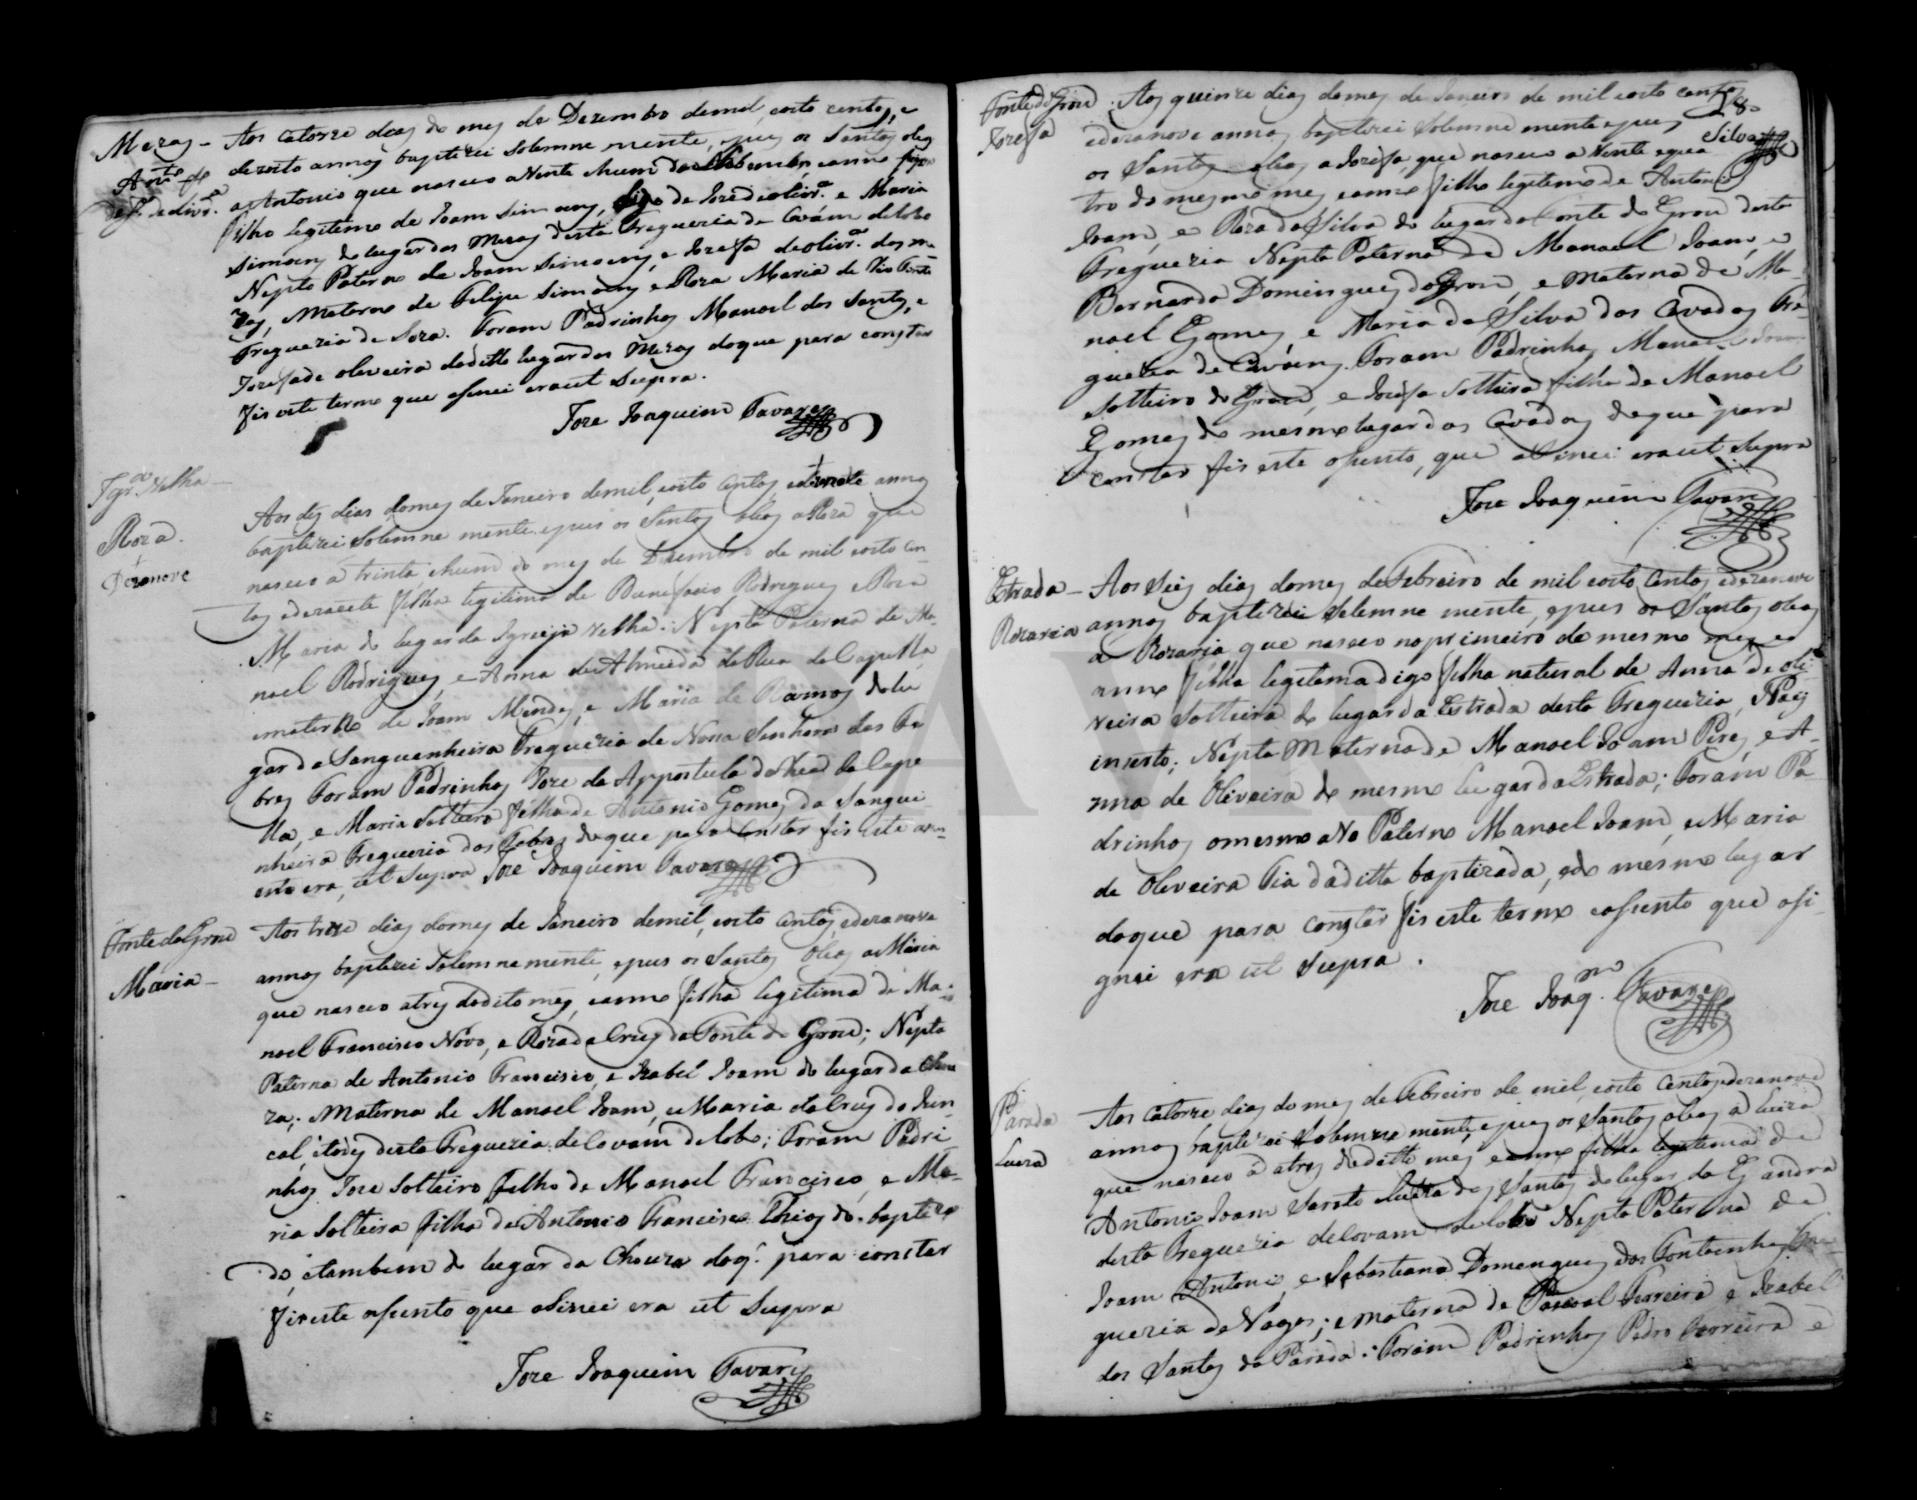 Mezas - Aos catorze dias do mes de Dezembro de mil, oito centos, e
Ant.º fº dezoito annos baptizei solemne mente, e pus os Santos oleos
de Jº de oliv.ª a Antonio que nasceo a vinte hum de Novembro, e anno
filho legitimo de Joam Simoens, digo de Jozé de oliv.ª e Maria
Simoens do lugar das Mezas desta Freguezia de Covam de lobo
Nepto Paterno de Joam Simoens, e Josefa de oliv.ª das me
zas, Materno de Felipe Simoens, e Roza Maria de Rio Tinto
Freguezia de Soza. Foram Padrinhos Manoel dos Santos, e
Josefa de oliveira do ditto lugar das Mezas do que para constar
fiz este termo que asinei era ut Supra.
Joze Joaquim Tavares
Igr.ª Velha
Roza.
Dezanove
Aos des dias do mes de Janeiro de mil, oito centos e annos
baptizei solemne mente e pus os Santos oleos a Roza que
nasceo a trinta e hum do mes de Dezembro de mil oito cen
tos e dezaoito filha legitima de Bonifacio Rodrigues e Roza
Maria do lugar da Igreja velha: Nepta Paterna de Ma-
noel Rodrigues, e Anna de Almeida da Rua da Capella,
e materna de Joam Mendes, e Maria de Ramos do lu
gar da Sanguenheira Freguezia de Nosa Senhora das Fe
bres Foram Padrinhos Joze da Appostula da Rua da Cape
lla, e Maria Solteira filha de Antonio Gomes da Sangui
nheira Freguezia das Febres do que para constar fis este asen-
to era, ut Supra Joze Joaquim Tavares
Fonte do Grou
Maria -
Aos treze dias do mes de Janeiro de mil, oito centos, e dezanove
annos baptizei solemnemente, e pus os Santos Oleos a Maria
que nasceo a tres do dito mes, e anno filha legitima de Ma-
noel Francisco Novo, e Roza da Crus da Fonte do Grou; Nepta
Paterna de Antonio Francisco, e Izabel Joam do lugar da Chou
za; Materna de Manoel Joam, e Maria da Crus do Jun-
cal, e todos desta Freguezia de Covam de lobo; Foram Padri-
nhos Joze Solteiro filho de Manoel Francisco, e Ma-
ria Solteira filha de Antonio Francisco Thios do baptiza
do, e tambem do lugar da Chouza do q.' para constar
fis este asento que asinei era ut Supra
Joze Joaquim Tavares
Fonte do Grou
Josefa
Aos quinze dias do mes de Janeiro de mil oito centos
e dezanove annos baptizei Solemne mente e pus Silva
os Santos oleos a Josefa, que nasceo a vinte e qua
tro do mesmo mes e anno filha legitima de Antonio
Joam, e Roza da Silva do lugar da Fonte do Grou desta
Freguezia Nepta Paterna de Manoel Joam, e
Bernarda Domingues do Grou, e materna de Ma-
noel Gomes, e Maria da Silva dos Cavados Fre
guezia de Covoens. Foram Padrinhos Manoel Joam
Solteiro do Grou, e Josefa Solteira filha de Manoel
Gomes do mesmo lugar dos Cavados do que para
constar fis este asento, que asinei era ut Supra
Joze Joaquim Tavares
Estrada - Aos Seis dias do mes de Febreiro de mil oito centos e dezanove
Rozaria annos baptizei Solemne mente, e pus os Santos oleos
a Rozaria que nasceo no primeiro do mesmo mes e
anno filha legitema digo filha natural de Anna de oli
veira Solteira do lugar da Estrada desta Freguezia, Pay
incerto; Nepta Materna de Manoel Joam Pires, e A-
nna de Oliveira do mesmo lugar da Estrada; Foram Pa
drinhos o mesmo avo Paterno Manoel Joam, e Maria
de Oliveira Tia da ditta baptizada, e do mesmo lugar
do que para constar fis este termo e asento que asi
gnei era ut Supra.
Joze Joaq.m Tavares
Parada
Luiza
Aos catorze dias do mes de Febreiro de mil, oito centos e dezanove
annos baptizei Solemne mente, e pus os Santos oleos a Luiza
que nasceo a tres do ditto mes e anno filha legitima de
Antonio Joam Sarnto Luiza dos Santos do lugar da Gandra
desta Freguezia de Covam de lobo Nepta Paterna de
Joam Antonio, e Sebastiana Domingues dos Fontainhas Fre
guezia de Vagos; e materna de Pascoal Ferreira e Izabel
dos Santos da Parada: Foram Padrinhos Pedro Ferreira e